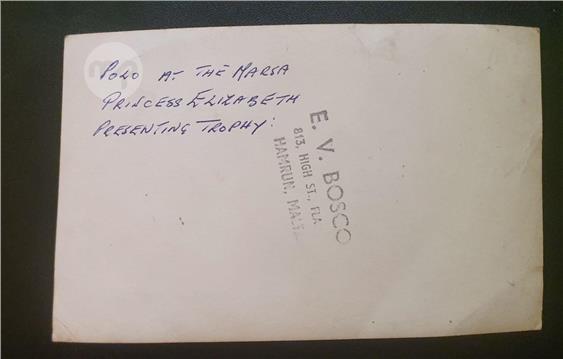 POLO AT THE MARSA
PRINCESS ELIZABETH
PRESENTING TROPHY:
E. V. BOSCO
813, HIGH ST., FLA
HAMRUN,